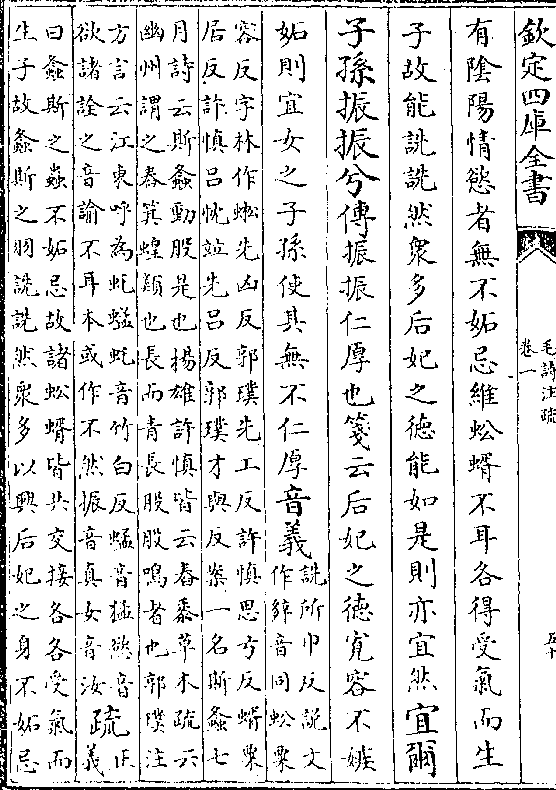 欽定四庫全書
毛詩注疏
卷一
五十
有陰陽情慾者無不妬忌維蚣蝑不耳各得受氣而生
子故能詵詵然衆多后妃之徳能如是則亦宜然宜爾
子孫振振兮傳振振仁厚也箋云后妃之德寛容不嫉
妬則宜女之子孫使其無不仁厚音義
詵所巾反説文
作𨐔音同蚣粟
容反字林作蜙先凶反郭璞先工反許慎思弓反蝑粟
居反許慎吕忱竝先吕反郭璞才與反案一名斯螽七
月詩云斯螽動股是也揚雄許慎皆云舂黍草木疏云
幽州謂之舂箕蝗類也長而青長股股鳴者也郭璞注
方言云江東呼為虴蜢虴音竹白反蜢音猛慾音
欲諸詮之音諭不耳本或作不然振音真女音汝
疏
正
義
曰螽斯之蟲不妬忌故諸蚣蝑皆共交接各各受氣而
生子故螽斯之羽詵詵然衆多以興后妃之身不妬忌